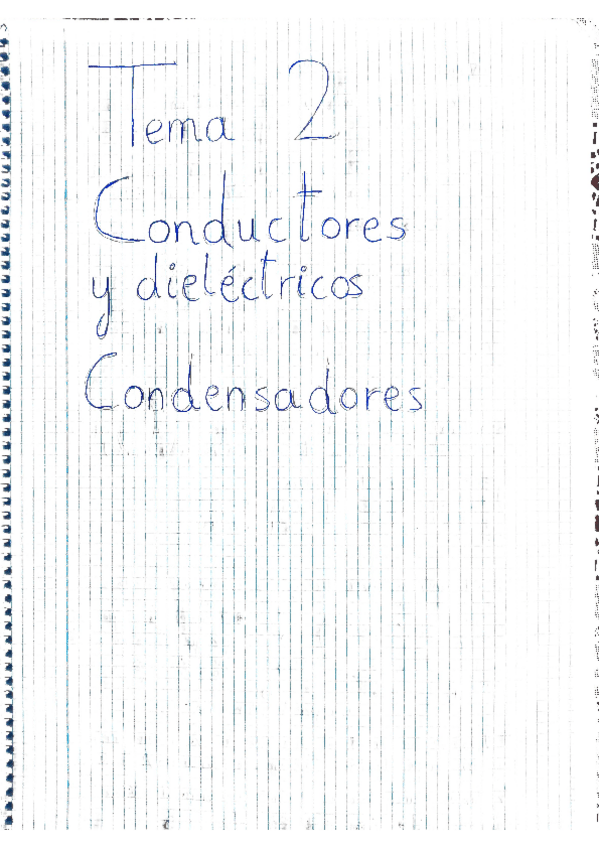 Tema 2
Conductores
y dieléctricos
Condensadores